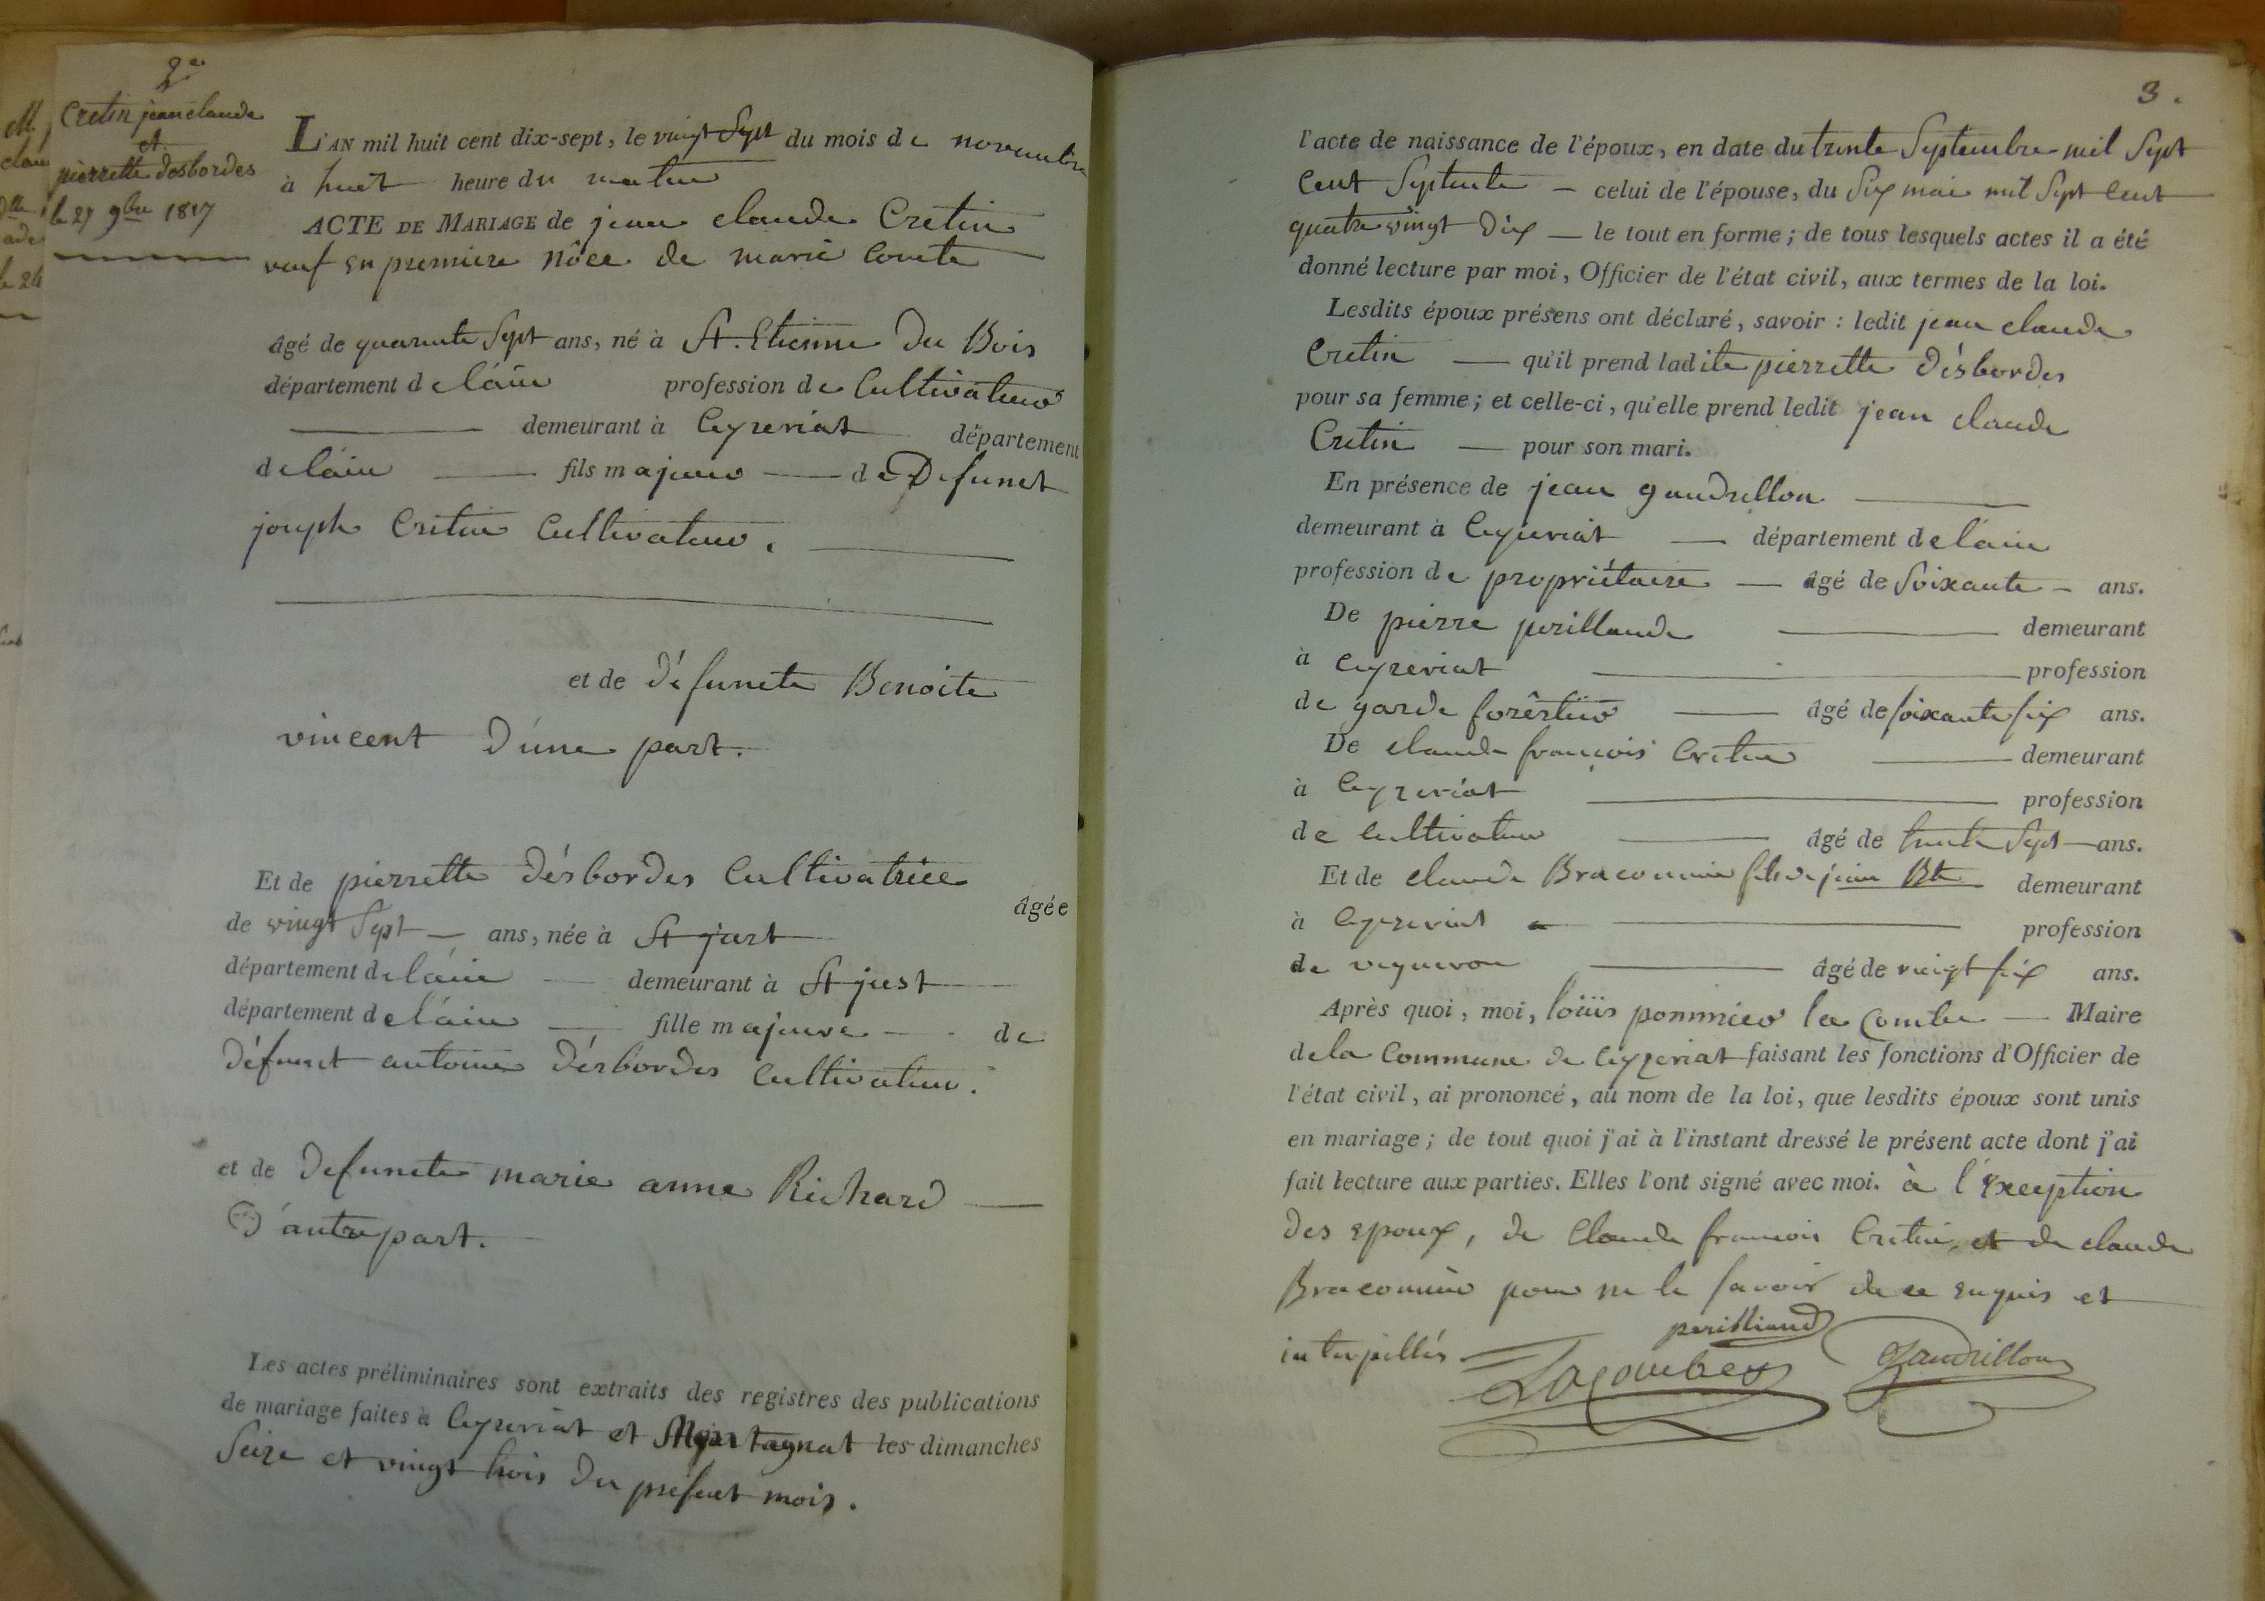 2e
Cretin jean claude
et
pierrette desbordes
le 27 9bre 1817
L'AN mil huit cent dix-sept, le vingt Sept du mois de novembre
à huit heure du matin
ACTE DE MARIAGE de jean claude Cretin
veuf en premiere nôce de marie Comte
âgé de quarante Sept ans, né à St. Etienne Du Bois
département de láin profession de Cultivateur
demeurant à Ceyzeriat département
de láin fils majeur de Défunct
joseph Cretin Cultivateur.
et de défuncte Benoite
vincent D'une part.
Et de pierrette désbordes Cultivatrice
âgée
de vingt Sept ans, née à St just
département de láin demeurant à St just
département de láin fille majeure de
défunct antoine Désbordes Cultivateur.
et de defuncte marie anne Richard
D'autre part.
Les actes préliminaires sont extraits des registres des publications
de mariage faites à Ceyzeriat et Montagnat les dimanches
Seize et vingt trois du présent mois.
3.
l'acte de naissance de l'époux, en date du trente Septembre mil Sept
Cent Septente celui de l'épouse, du Six mai mil Sept Cent
quatre vingt Dix le tout en forme; de tous lesquels actes il a été
donné lecture par moi, Officier de l'état civil, aux termes de la loi.
Lesdits époux présens ont déclaré, savoir : ledit jean claude
Cretin qu'il prend ladite pierrette désbordes
pour sa femme; et celle-ci, qu'elle prend ledit jean claude
Cretin pour son mari.
En présence de jean gaudrillon
demeurant à Ceyzeriat département de láin
profession de propriétaire âgé de Soixante ans.
De pierre perillaude demeurant
à Ceyzeriat profession
de garde forêstier âgé de soixante six ans.
De claude françois Cretin demeurant
à Ceyzeriat profession
de cultivateur âgé de trente Sept ans.
Et de claude Braconnier fils de jean Bte demeurant
à Ceyzeriat profession
de vigneron âgé de vingt six ans.
Après quoi, moi, loüis pommier la Combe Maire
de la Commune de Ceyzeriat faisant les fonctions d'Officier de
l'état civil, ai prononcé, au nom de la loi, que lesdits époux sont unis
en mariage; de tout quoi j'ai à l'instant dressé le présent acte dont j'ai
fait lecture aux parties. Elles l'ont signé avec moi. à l'exception
des epoux, de Claude francois Cretin, et de claude
Braconnier pour ne le savoir de ce enquis et
interpellés
perilliaud
Lacombe
Gaudrillon